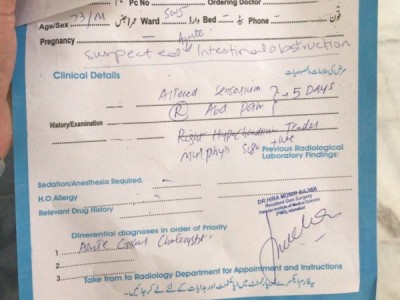 Pc No Ordering Doctor
Age/Sex 73/M عمر/جنس Ward SW5 وارڈ Bed بیڈ Phone فون
Pregnancy Acute
Suspected Intestinal obstruction
Clinical Details
Altered Sensorium
5 DAYS
History/Examination (R) Abd Pain
Right Hypochondrium Tender
Murphy's Sign +ive
Previous Radiological
Laboratory Findings:
Sedation/Anesthesia Required.
H.O.Allergy
Relevant Drug History
DR.HIRA MUNIR BAJWA
Resident Gen Surgery
Pakistan Institute of Medical Sciences
(PIMS), Islamabad
Dinerential diagnoses in order of Priority
1. Acute Cholecystitis
2.
3.
Take from to Radiology Department for Appointment and Instructions